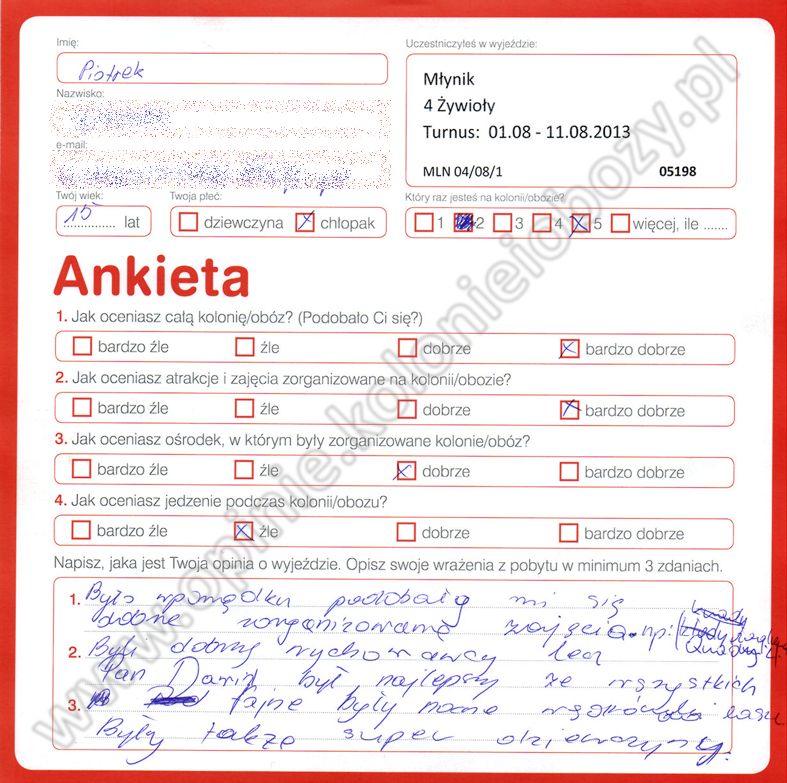 Imię:
Piotrek
Uczestniczyłeś w wyjeździe:
Młynik
4 Żywioły
Turnus: 01.08 - 11.08.2013
MLN 04/08/1 05198
Nazwisko:
e-mail:
Twój wiek:
15 lat
Twoja płeć:
dziewczyna chłopak
Który raz jesteś na kolonii/obozie?
1 2 3 4 5 więcej, ile .......
Ankieta
1. Jak oceniasz całą kolonię/obóz? (Podobało Ci się?)
bardzo źle źle dobrze bardzo dobrze
2. Jak oceniasz atrakcje i zajęcia zorganizowane na kolonii/obozie?
bardzo źle źle dobrze bardzo dobrze
3. Jak oceniasz ośrodek, w którym były zorganizowane kolonie/obóz?
bardzo źle źle dobrze bardzo dobrze
4. Jak oceniasz jedzenie podczas kolonii/obozu?
bardzo źle źle dobrze bardzo dobrze
Napisz, jaka jest Twoja opinia o wyjeździe. Opisz swoje wrażenia z pobytu w minimum 3 zdaniach.
1. Było wporządku podobały mi się
dobrze zorganizowane zajęcia np:
2. Byli dobrzy wychowawcy lecz
Pan Dawid był najlepszy ze wszystkich
3. fajne były nocne
Były także super dziewczyny.
www.opinie.kolonieiobozy.pl